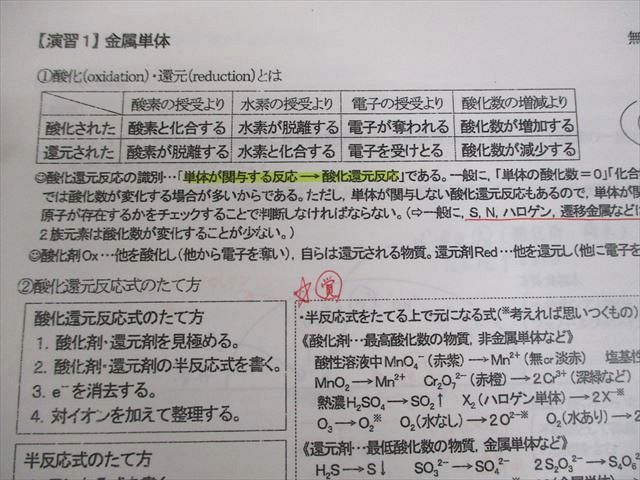 【演習1】金属単体
無
①酸化(oxidation)・還元(reduction)とは
酸素の授受より 水素の授受より 電子の授受より 酸化数の増減より
酸化された 酸素と化合する 水素が脱離する 電子が奪われる 酸化数が増加する
還元された 酸素が脱離する 水素と化合する 電子を受けとる 酸化数が減少する
酸化還元反応の識別…「単体が関与する反応→酸化還元反応」である。一般に,「単体の酸化数=0」「化合
では酸化数が変化する場合が多いからである。ただし, 単体が関与しない酸化還元反応もあるので, 単体が関
原子が存在するかをチェックすることで判断しなければならない。(⇨一般に, S, N, ハロゲン, 遷移金属など
2族元素は酸化数が変化することが少ない。)
酸化剤Ox…他を酸化し(他から電子を奪い), 自らは還元される物質。還元剤Red…他を還元し(他に電子を
②酸化還元反応式のたて方
☆覚
酸化還元反応式のたて方
1. 酸化剤・還元剤を見極める。
2. 酸化剤・還元剤の半反応式を書く。
3. e⁻を消去する。
4. 対イオンを加えて整理する。
半反応式のたて方
・半反応式をたてる上で元になる式(※考えれば思いつくもの)
《酸化剤…最高酸化数の物質, 非金属単体など》
酸性溶液中MnO₄⁻(赤紫)→Mn²⁺(無or淡赤) 塩基
MnO₂→Mn²⁺ Cr₂O₇²⁻(赤橙)→2Cr³⁺(深緑など)
熱濃H₂SO₄→SO₂↑ X₂(ハロゲン単体)→2X⁻※
O₃→O₂※ O₂(水なし)→2O²⁻※ O₂(水あり)→2
《還元剤…最低酸化数の物質, 金属単体など》
H₂S→S↓ SO₃²⁻→SO₄²⁻ 2S₂O₃²⁻→S₄O₆